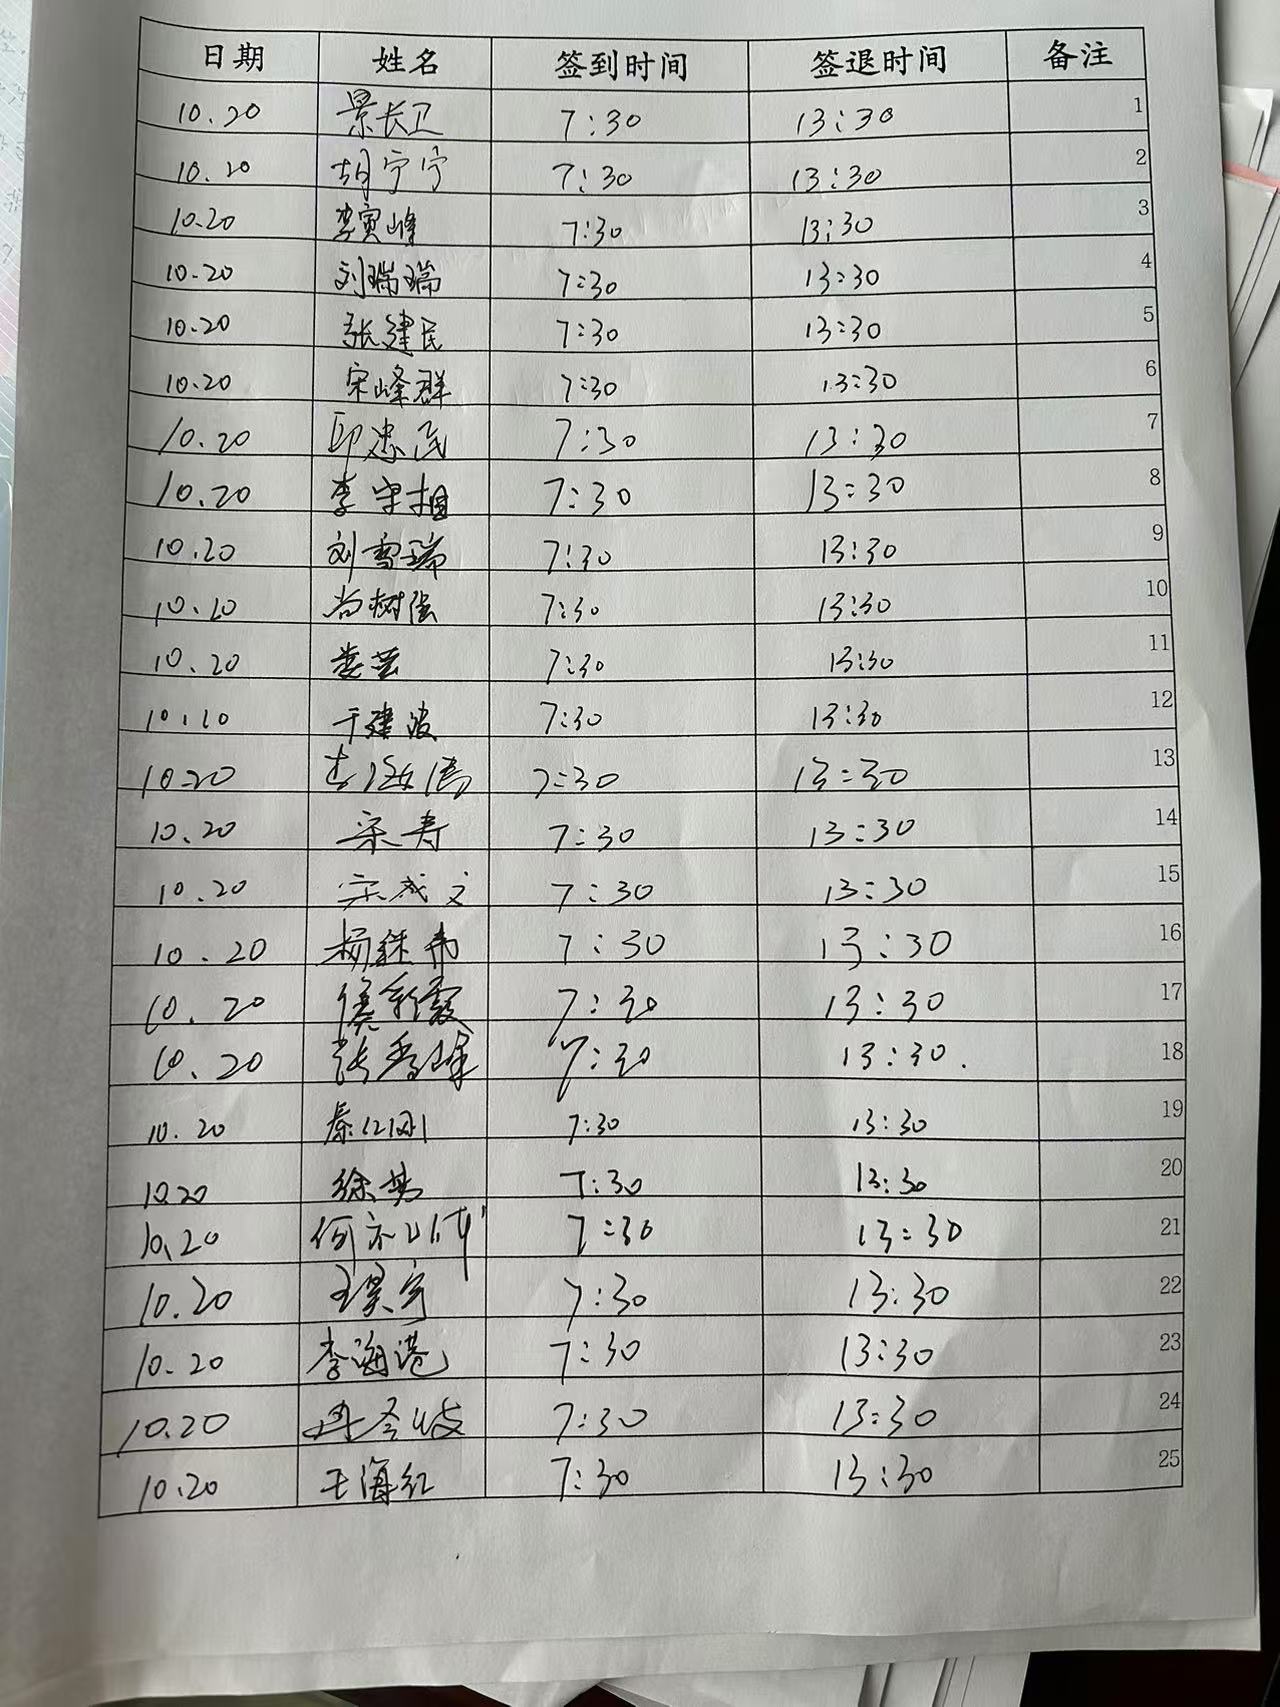 日期 姓名 签到时间 签退时间 备注
10.20 景长卫 7:30 13:30 1
10.20 胡宁宁 7:30 13:30 2
10.20 李寅峰 7:30 13:30 3
10.20 刘瑞瑞 7:30 13:30 4
10.20 张建民 7:30 13:30 5
10.20 宋峰群 7:30 13:30 6
10.20 印忠民 7:30 13:30 7
10.20 李守相 7:30 13:30 8
10.20 刘雪瑞 7:30 13:30 9
10.20 尚树强 7:30 13:30 10
10.20 娄芸 7:30 13:30 11
10.20 于建波 7:30 13:30 12
10.20 7:30 13:30 13
10.20 宋寿 7:30 13:30 14
10.20 宋成文 7:30 13:30 15
10.20 杨继伟 7:30 13:30 16
10.20 侯彩霞 7:30 13:30 17
10.20 张秀峰 7:30 13:30. 18
10.20 秦江刚 7:30 13:30 19
10.20 徐势 7:30 13:30 20
10.20 7:30 13:30 21
10.20 王昊宇 7:30 13:30 22
10.20 李海港 7:30 13:30 23
10.20 7:30 13:30 24
10.20 王海红 7:30 13:30 25